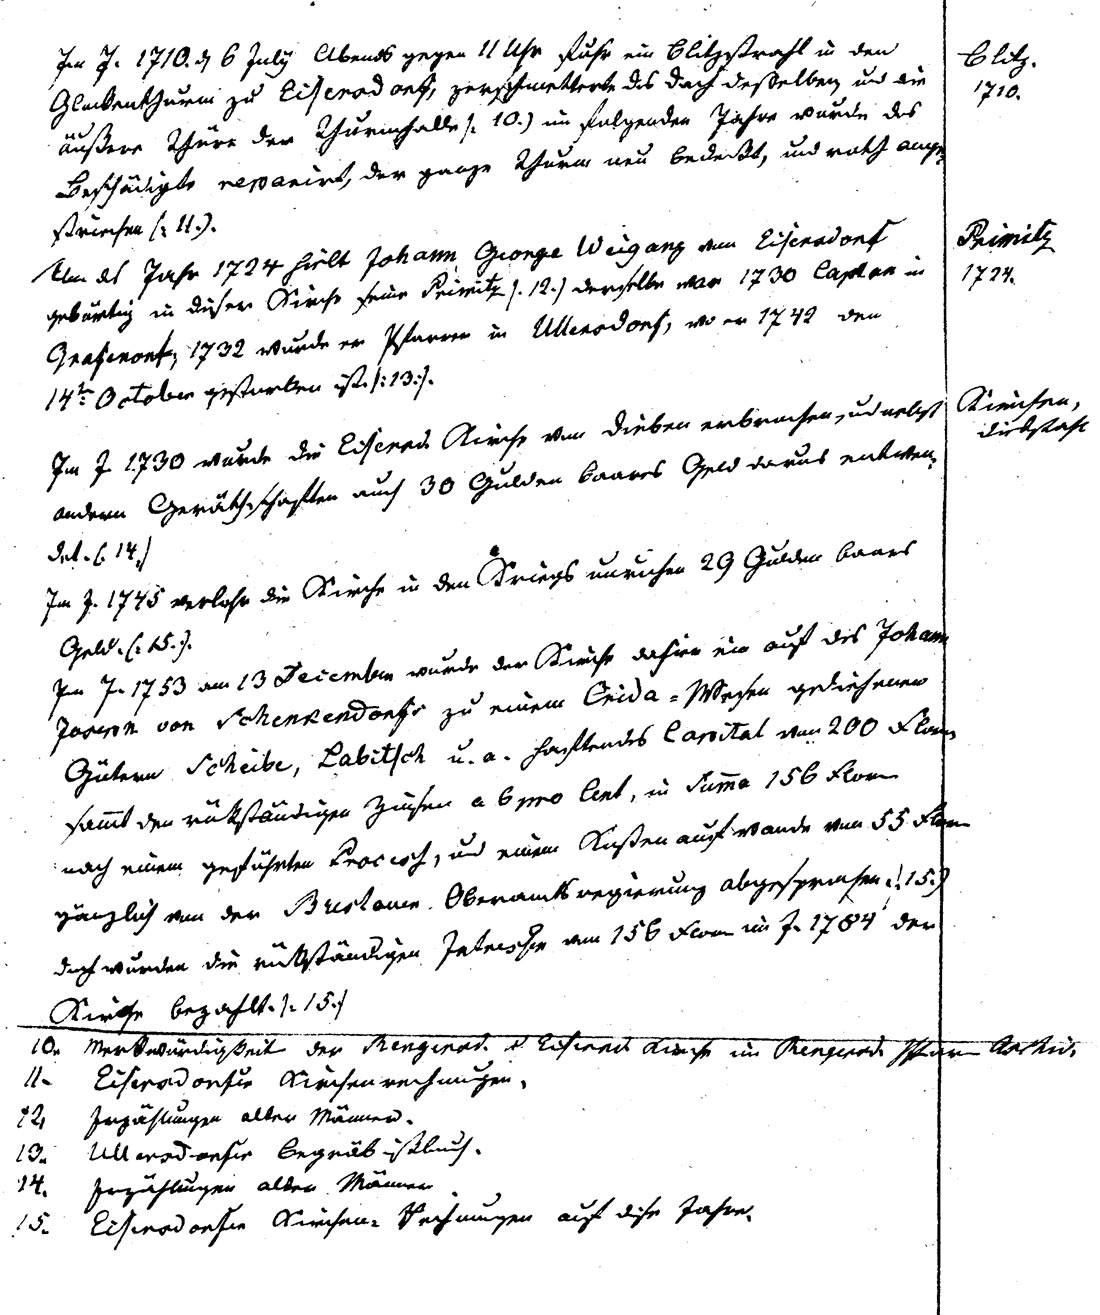 Im J. 1710. d 6 July Abends gegen 11 Uhr fuhr ein Blitzstrahl in den
Blitz.
1710.
Glockenthurm zu Eisersdorf, zerschmetterte das Dach desselben und die
äußere Thüre der Thurmhalle (: 10.) im folgenden Jahre wurde das
Beschädigte reparirt, der ganze Thurm neu bedeckt, und roth ange
strichen (: 11.).
Um das Jahr 1724 hielt Johann George Weigang von Eisersdorf
Primitz
1724.
gebürtig in dieser Kirche seine Primitz (: 12.) derselbe war 1730 Caplan in
1732 wurde er Pfarrer in Ullersdorf, wo er 1742 den
14t October gestorben ist. (: 13:).
Im J 1730 wurde die Eisersd. Kirche von Dieben erbrochen, und nebst
Kirchen,
diebstahl
andern Geräthschaften auch 30 Gulden baares Geld daraus entwen,
det. (: 14.)
Im J. 1745 verlohr die Kirche in den Kriegs unruhen 29 Gulden baares
Geld. (: 15.).
Im J. 1753 am 13 December wurde der Kirche dahier ein auf des Johann
Joseph von Schenkendorfs zu einem Crida = Wesen gediehenen
Gütern Scheibe, Labitsch u. a. haftendes Capital von 200 Floren
sammt den rükständigen Zinsen a 6 pro Cent, in Suma 156 Floren
nach einem geführten Process, und einem Kostenaufwande von 55 Floren
gänzlich von der Breslauer Oberamtsregierung abgesprochen (: 15.)
doch wurden die rükständigen Interessen von 156 Floren im J. 1784 der
Kirche bezahlt. (: 15.)
10. Merkwürdigkeit der Rengersd. & Eisersd. Kirche im Rengersd. Pfarr Archiv.
11. Eisersdorfer Kirchenrechnungen.
12. Erzählungen alter Männer.
13. Ullersdorfer Begräbnißbuch.
14. Erzählungen alter Männer
15. Eisersdorfer Kirchen= Rechnungen auf diese Jahre.